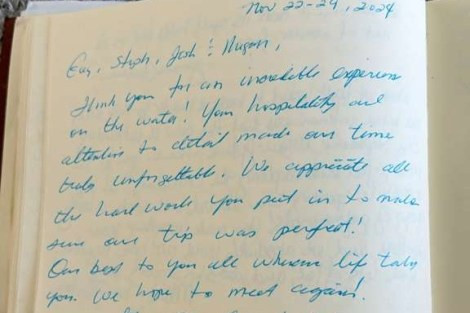 Nov 22-29, 2024
Guy, Steph, Josh & Megan,
Thank you for an incredible experience
on the water! Your hospitality and
attention to detail made our time
truly unforgettable. We appreciate all
the hard work you put in to make
sure our trip was perfect!
Our best to you all wherever life takes
you. We hope to meet again!